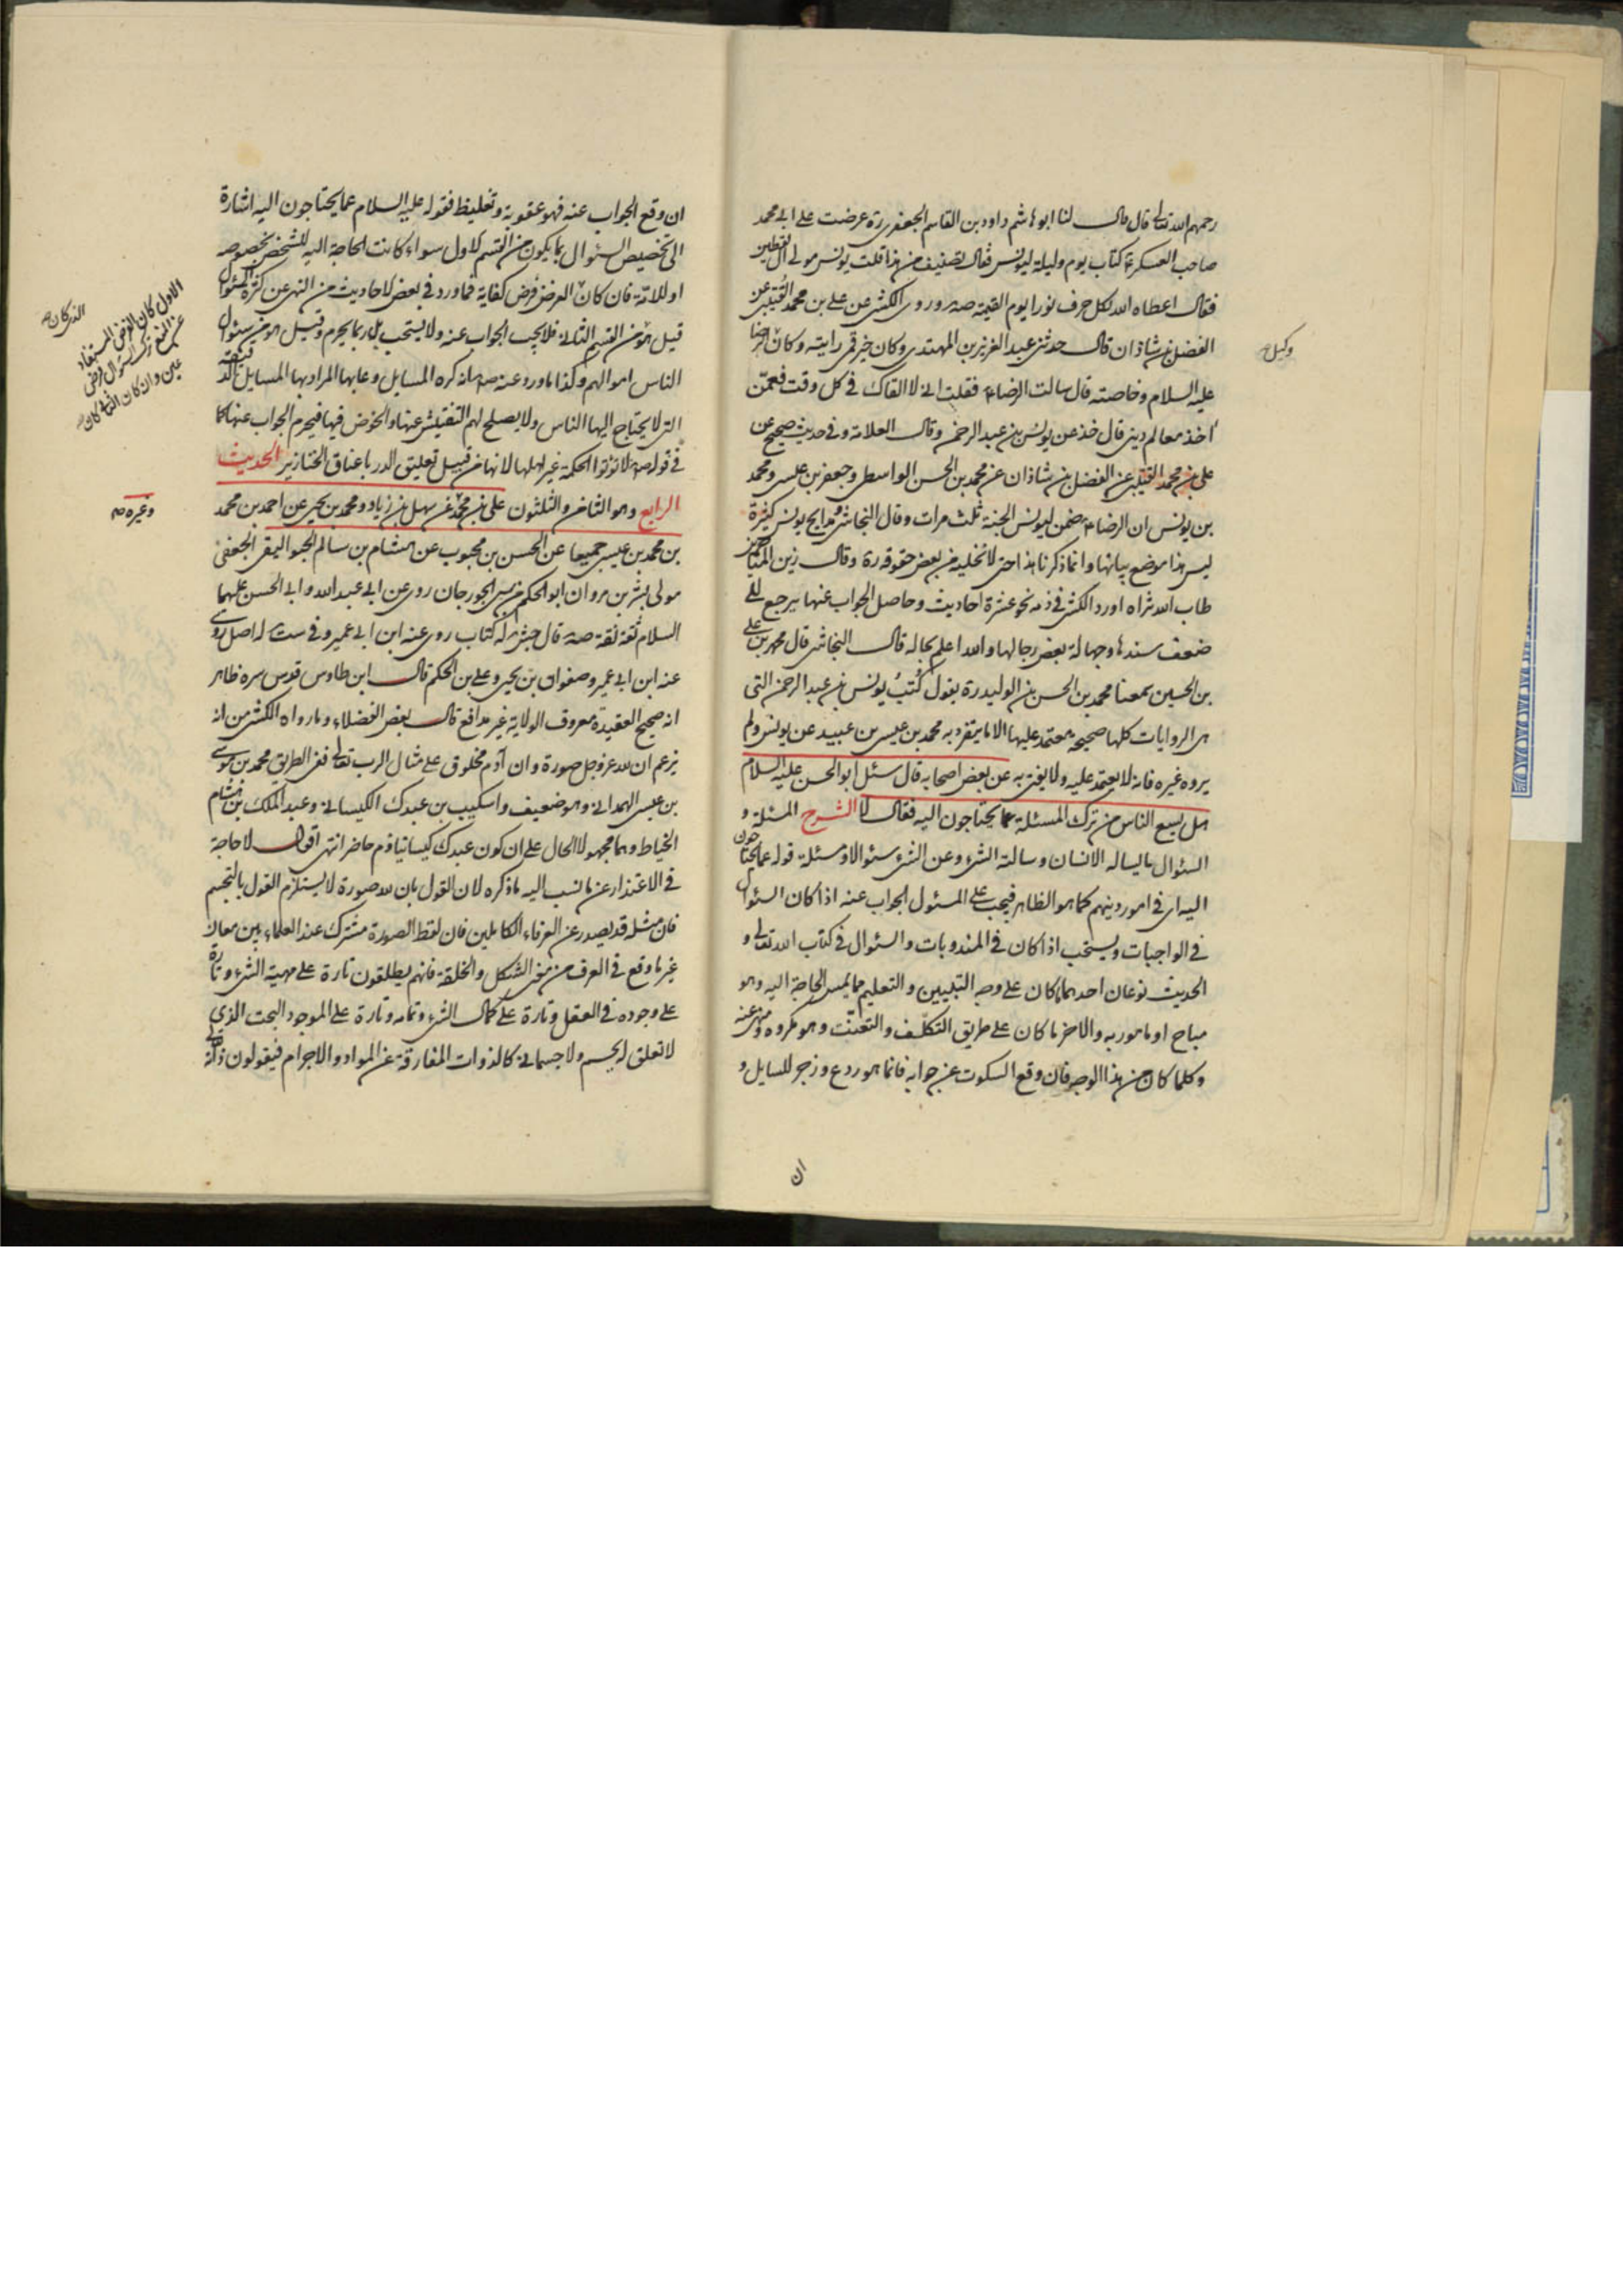 رحمهم الله تعالى قال قال لنا ابو هاشم داود بن القاسم الجعفرى ره عرضت على ابى محمد
صاحب العسكر ع كتاب يوم وليلة ليونس فقال تصنيف من هذا قلت يونس مولى آل يقطين
فقال اعطاه الله لكل حرف نورا يوم القيمة صه وروى الكشى عن على بن محمد القتيبى عن
الفضل بن شاذان قال حدثنى عبد العزيز بن المهتدى وكان خير قمى رايته وكان الرضا
وكيل
عليه السلام وخاصته قال سالت الرضاء ع فقلت انى لا القاك فى كل وقت فعمّن
اخذ معالم دينى قال خذ عن يونس بن عبد الرحمن وقال العلامة وفى حديث صحيح عن
على بن محمد القتيبى عن الفضل بن شاذان عن محمد بن الحسن الواسطى وجعفر بن عيسى ومحمد
بن يونس ان الرضاء ع ضمن ليونس الجنة ثلث مرات وقال النجاشى ومدايح يونس كثيرة
ليس هذا موضع بيانها وانما ذكرنا هذا حتى لا نخليه من بعض حقوقه ره وقال زين المتاخرين
طاب الله ثراه اورد الكشى فى ذمه نحو عشرة احاديث وحاصل الجواب عنها يرجع الى
ضعف سندها وجهالة بعض رجالها والله اعلم بحاله قال النجاشى قال محمد بن على
بن الحسين سمعنا محمد بن الحسن بن الوليد ره يقول كُتبُ يونس بن عبد الرحمن التى
هى الروايات كلها صحيحة معتمد عليها الا ما يتفرد به محمد بن عيسى بن عبيد عن يونس ولم
يروه غيره فانه لا يعتمد عليه ولا يفتى به عن بعض اصحابه قال سئل ابو الحسن عليه السلام
هل يسع الناس من ترك المسئلة عما يحتاجون اليه فقال لا الشرح المسئلة و
السئوال ما يساله الانسان وسالته الشىء وعن الشىء سئوالا ومسئلة قوله عما يحتاجون
اليه اى فى امور دينهم كما هو الظاهر فيجب على المسئول الجواب عنه اذا كان السئوال
فى الواجبات ويستحب اذا كان فى المندوبات والسئوال فى كتاب الله تعالى و
الحديث نوعان احدهما ما كان على وجه التبيين والتعليم مما يمس الحاجة اليه وهو
مباح او مامور به والاخر ما كان على طريق التكلّف والتعنّت وهو مكروه ومنهى عنه
وكلما كان من هذا الوجه فان وقع السكوت عن جوابه فانما هو ردع وزجر للسايل و
ان
ان وقع الجواب عنه فهو عقوبة وتغليظ فقوله عليه السلام عما يحتاجون اليه اشارة
الى تخصيص السئوال بما يكون من القسم الاول سواء كانت الحاجة اليه للشخص بخصوصه
او للامة فان كان الغرض فرض كفاية فما ورد فى بعض الاحاديث من النهى عن كثرة السئوال
الذى كان
الاول كان الفرض المستفاد
عن النفى ترك السئوال فرض
عين وان كان الثانى كان
قيل هو من القسم الثانى فلا يجب الجواب عنه ولا يستحب بل ربما يحرم وقيل هو من سئوال
الناس اموالهم وكذا ما ورد عنه ص انه كره المسايل وعابها المراد بها المسايل الدقيقة
التى لا يحتاج اليها الناس ولا يصلح لهم التفتيش عنها والخوض فيها فيحرم الجواب عنها كما
فى قوله ص لا تؤتوا الحكمة غير اهلها لانها من قبيل تعليق الدر باعناق الخنازير الحديث
الرابع وهو الثامن والثلثون على بن محمد عن سهل بن زياد ومحمد بن يحيى عن احمد بن محمد
وغيره صه
بن محمد بن عيسى جميعا عن الحسن بن محبوب عن هشام بن سالم الجواليقى الجعفى
مولى بشر بن مروان ابو الحكم من سبى الجورجان روى عن ابى عبد الله وابى الحسن عليهما
السلام ثقة ثقة صه قال جش له كتاب روى عنه ابن ابى عمير وفى ست له اصل روى
عنه ابن ابى عمير وصفوان بن يحيى وعلى بن الحكم قال ابن طاوس قدس سره ظاهر
انه صحيح العقيدة معروف الولاية غير مدافع قال بعض الفضلاء وما رواه الكشى من انه
يزعم ان لله عز وجل صورة وان آدم مخلوق على مثال الرب تعالى ففى الطريق محمد بن موسى
بن عيسى الهمدانى وهو ضعيف واسكيب بن عبدك الكيسانى وعبد الملك بن هشام
الخياط وهما مجهولا الحال على ان كون عبدك كيسانيا ذم حاضر انتهى اقول لا حاجة
فى الاعتذار عن ما نسب اليه ما ذكره لان القول بان لله صورة لا يستلزم القول بالتجسم
فان مثله قد يصدر عن العرفاء الكاملين فان لفظ الصورة مشترك عند العلماء بين معان
غير ما وقع فى العرف من معنى الشكل والخلقة فانهم يطلقون تارة على مهية الشىء وتارة
على وجوده فى العقل وتارة على كمال الشىء وتمامه وتارة على الموجود البحت الذى
لا تعلق له بجسم ولا جسمانى كالذوات المفارقة عن المواد والاجرام فيقولون